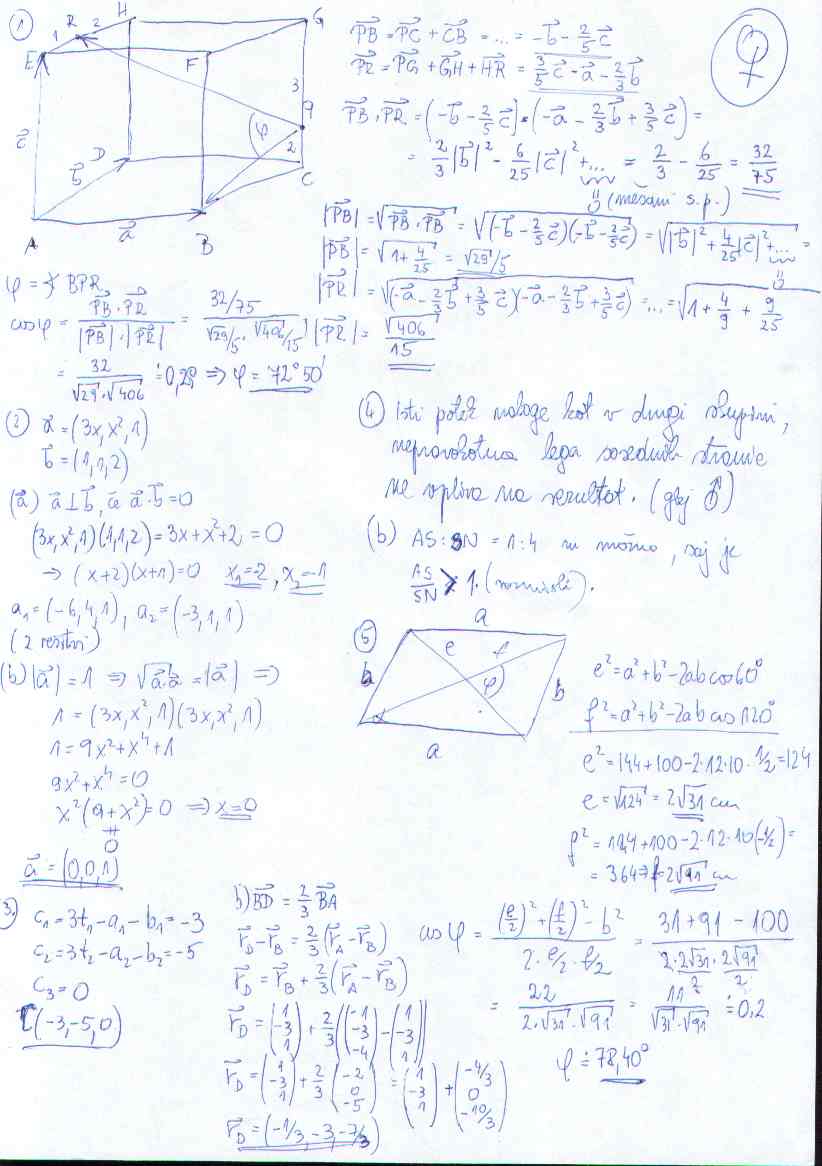 ① 
H
G
R
2
1
E
F
3
P
φ
2
D
C
c⃗
b⃗
A
a⃗
B
PB⃗ = PC⃗ + CB⃗ = ... = -b⃗ - 2/5 c⃗
PR⃗ = PG⃗ + GH⃗ + HR⃗ = 3/5 c⃗ - a⃗ - 2/3 b⃗
♀
PB⃗ · PR⃗ = (-b⃗ - 2/5 c⃗) · (-a⃗ - 2/3 b⃗ + 3/5 c⃗) =
= 2/3 |b⃗|² - 6/25 |c⃗|² + ... = 2/3 - 6/25 = 32/75
0 (mešani s.p.)
|PB⃗| = √(PB⃗ · PB⃗) = √((-b⃗ - 2/5 c⃗)(-b⃗ - 2/5 c⃗)) = √(|b⃗|² + 4/25 |c⃗|² + ...) =
0
|PB⃗| = √(1 + 4/25) = √29/5
|PR⃗| = √((-a⃗ - 2/3 b⃗ + 3/5 c⃗)(-a⃗ - 2/3 b⃗ + 3/5 c⃗)) = ... = √(1 + 4/9 + 9/25)
|PR⃗| = √406/15
φ = ∢ BPR
cos φ = PB⃗ · PR⃗ / |PB⃗| · |PR⃗| = 32/75 / √29/5 · √406/15
= 32 / √29 · √406 ≐ 0,29 ⇒ φ = 72° 50'
② a⃗ = (3x, x², 1)
b⃗ = (1, 1, 2)
(a) a⃗ ⊥ b⃗, če a⃗ · b⃗ = 0
(3x, x², 1)(1, 1, 2) = 3x + x² + 2 = 0
→ (x+2)(x+1) = 0 x₁ = -2, x₂ = -1
a₁ = (-6, 4, 1), a₂ = (-3, 1, 1)
(2 rešitvi)
(b) |a⃗| = 1 ⇒ √(a⃗ · a⃗) = |a⃗| ⇒
1 = (3x, x², 1)(3x, x², 1)
1 = 9x² + x⁴ + 1
9x² + x⁴ = 0
x²(9 + x²) = 0 ⇒ x = 0
≠
0
a⃗ = (0, 0, 1)
3. c₁ = 3t₁ - a₁ - b₁ = -3
c₂ = 3t₂ - a₂ - b₂ = -5
c₃ = 0
C(-3, -5, 0)
b) BD⃗ = 2/3 BA⃗
r⃗D - r⃗B = 2/3 (r⃗A - r⃗B)
r⃗D = r⃗B + 2/3 (r⃗A - r⃗B)
r⃗D = (1 -3 1) + 2/3 ((-1 -3 -4) - (1 -3 1))
r⃗D = (1 -3 1) + 2/3 (-2 0 -5) = (1 -3 1) + (-4/3 0 -10/3)
r⃗D = (-1/3, -3, -7/3)
④ Isti potek naloge kot v drugi skupini,
nepravokotna lega sosednih stranic
ne vpliva na rezultat. (glej ♂)
(b) AS : SN = 1:4 ni možno, saj je
AS/SN > 1. (razmisli).
⑤
a
e
f
b
φ
b
α
a
e² = a² + b² - 2ab cos 60°
f² = a² + b² - 2ab cos 120°
e² = 144 + 100 - 2·12·10 · 1/2 = 124
e = √124 = 2√31 cm
f² = 144 + 100 - 2·12·10 (-1/2) =
= 364 ⇒ f = 2√91 cm
cos φ = (e/2)² + (f/2)² - b² / 2 · e/2 · f/2 = 31 + 91 - 100 / 2 · 2√31/2 · 2√91/2
= 22 / 2 · √31 · √91 = 11 / √31 · √91 ≐ 0,2
φ ≐ 78,40°